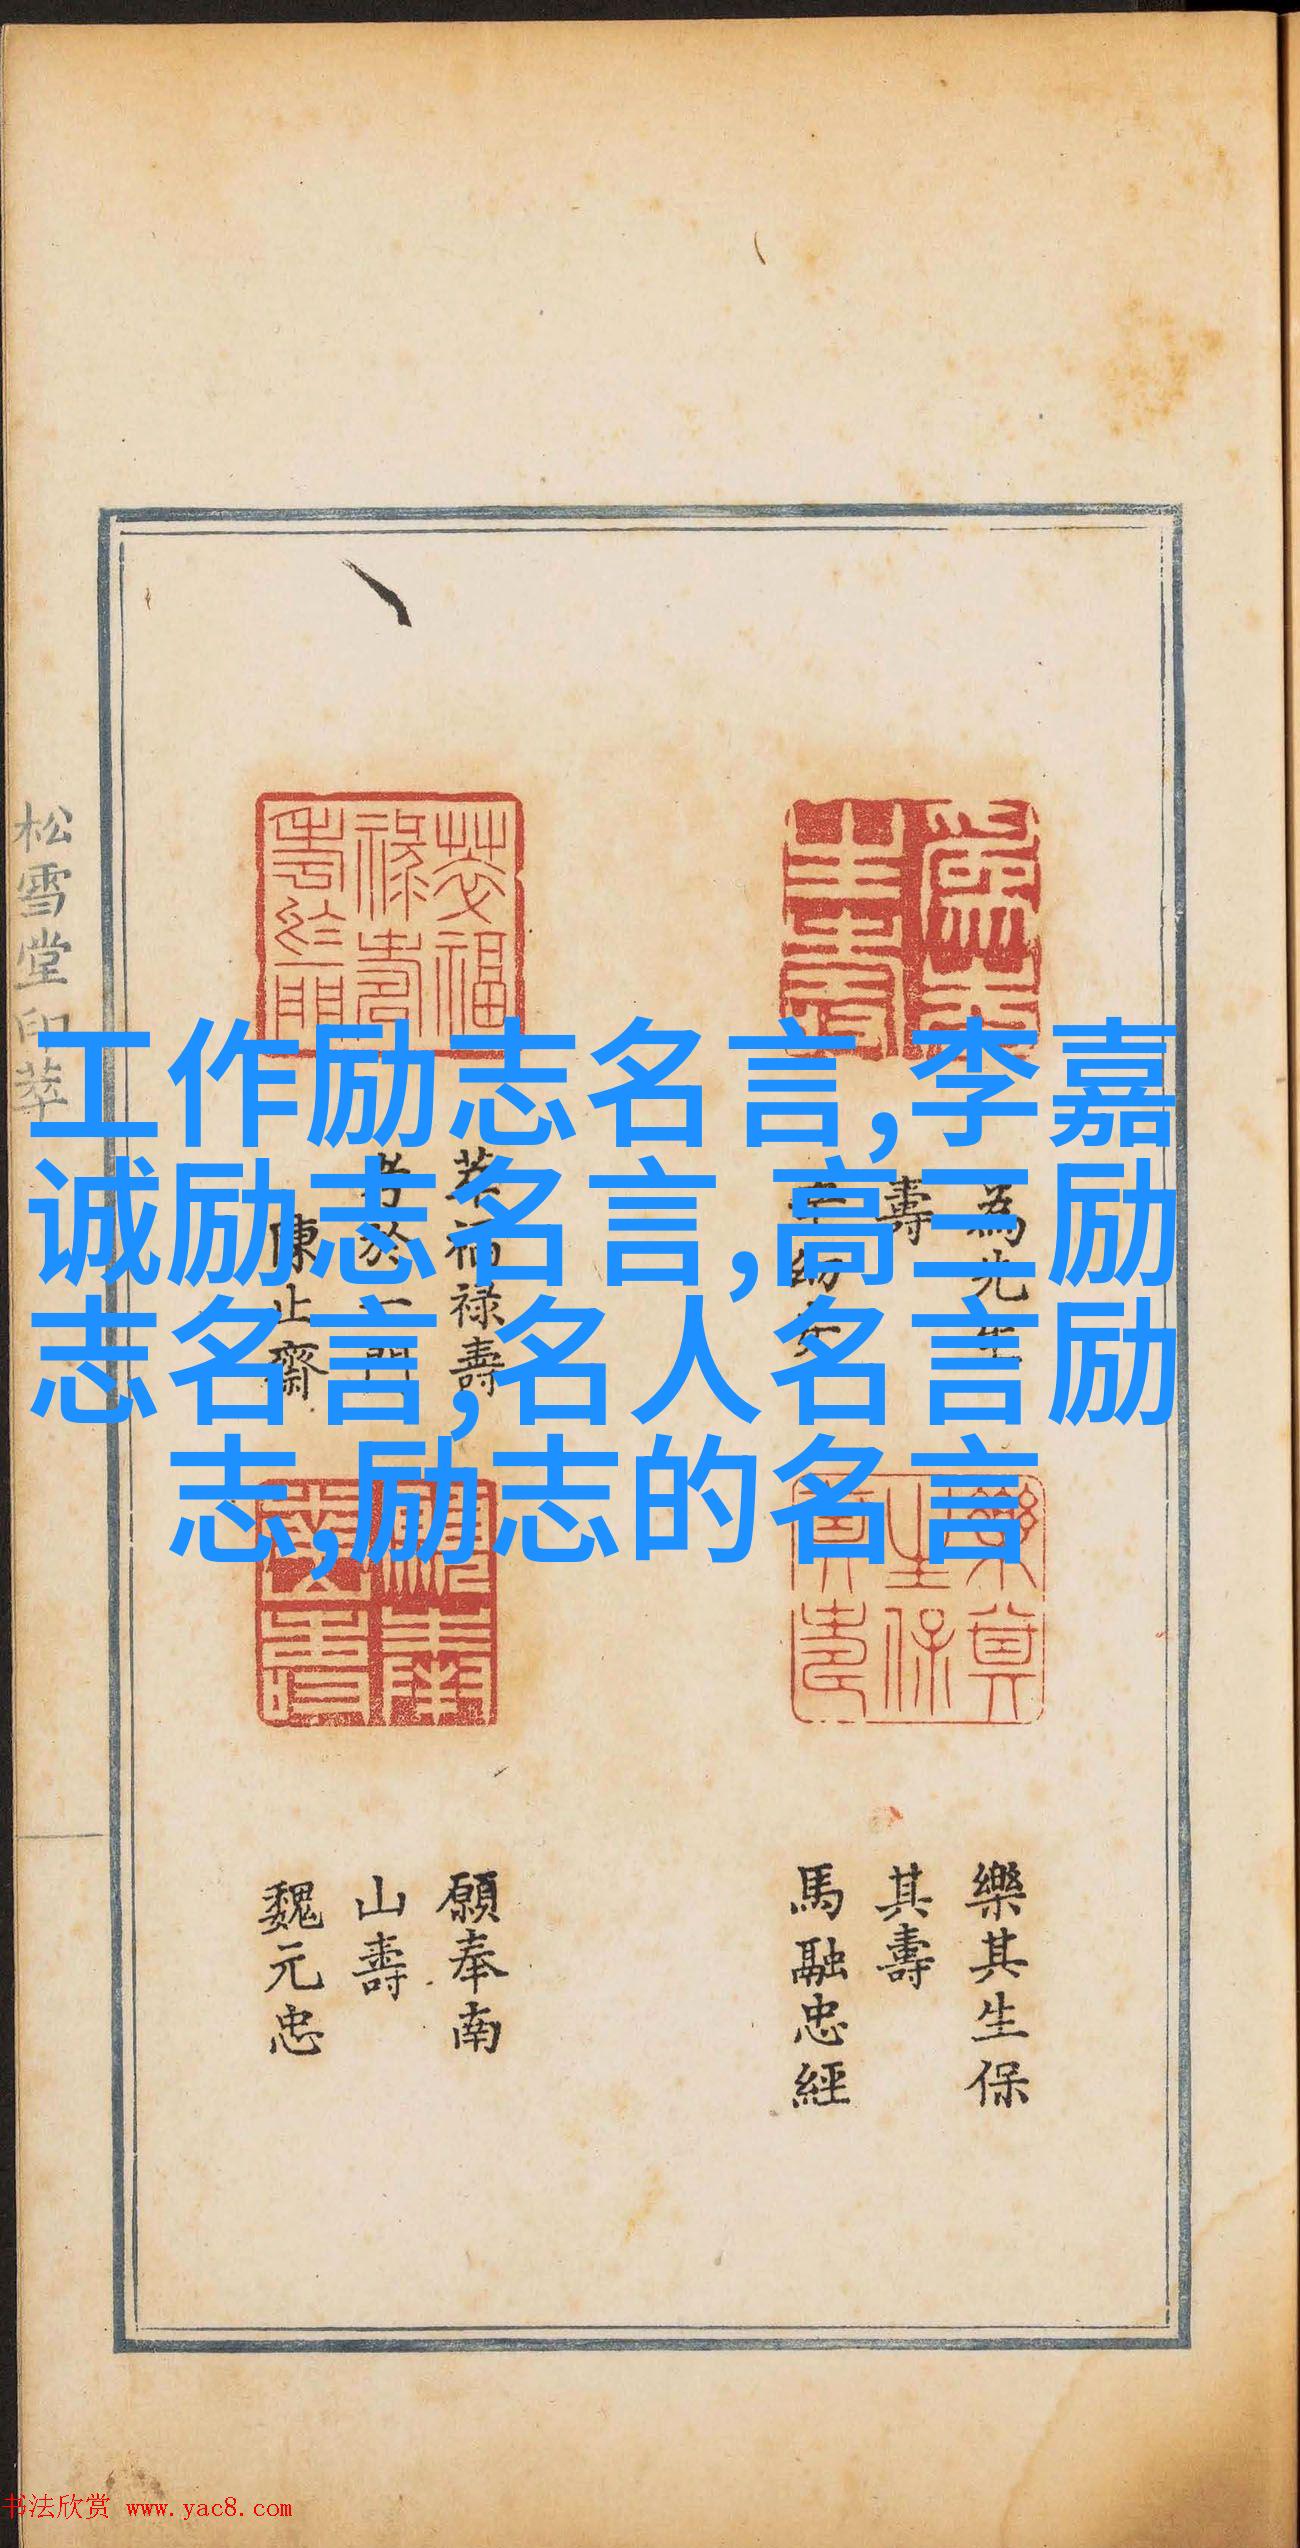 工作励志名言,李嘉
诚励志名言,高三励
志名言,名人名言励
志,励志的名言
松雪堂印萃
為先生
壽
萃福禄壽
陳止齋
樂其生保
其壽
馬融忠經
願奉南
山壽
魏元忠
书法欣赏 www.yac8.com